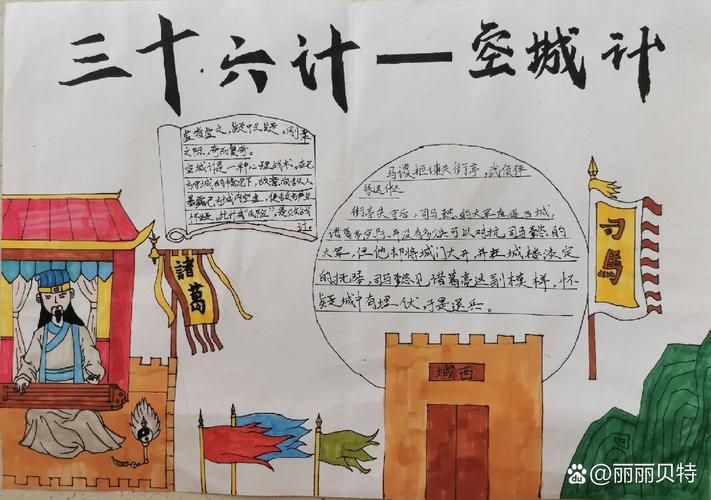 三十六计—空城计
虚者虚之，疑中生疑。刚柔
之际，奇而复奇。
空城计是一种心理战术。在己
方守城的情况下，故意向敌人
暴露己方城内空虚，使敌方产生
怀疑，此计
马谡拒谏失街亭，武侯弹
琴退仲达
街亭失守后，司马懿的大军直逼西城，
诸葛亮 并没有多少兵可以对抗司马懿的
大军，但他却将城门大开，并在城楼淡定
的抚琴，司马懿见诸葛亮这副模样，怀
疑城中有埋伏，于是退兵。
諸葛
司馬
城西
du @丽丽贝特